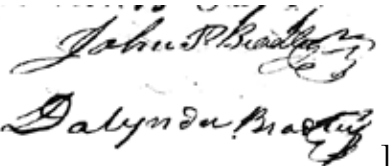 John P Bradley
Dalyndu Bradley